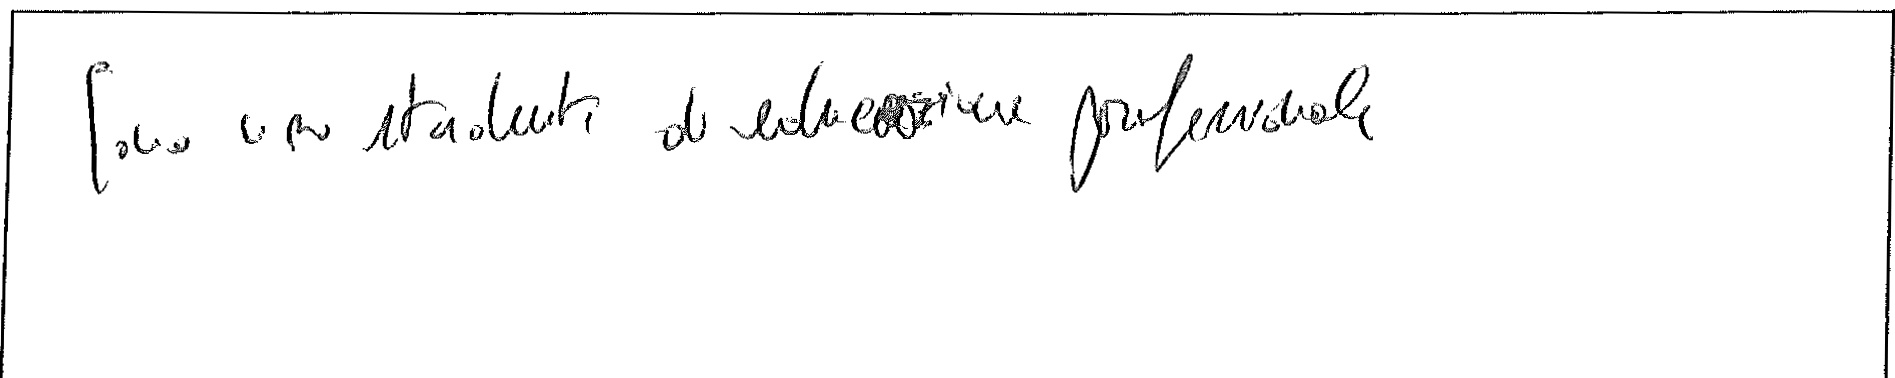 Sono uno studente di educazione professionale